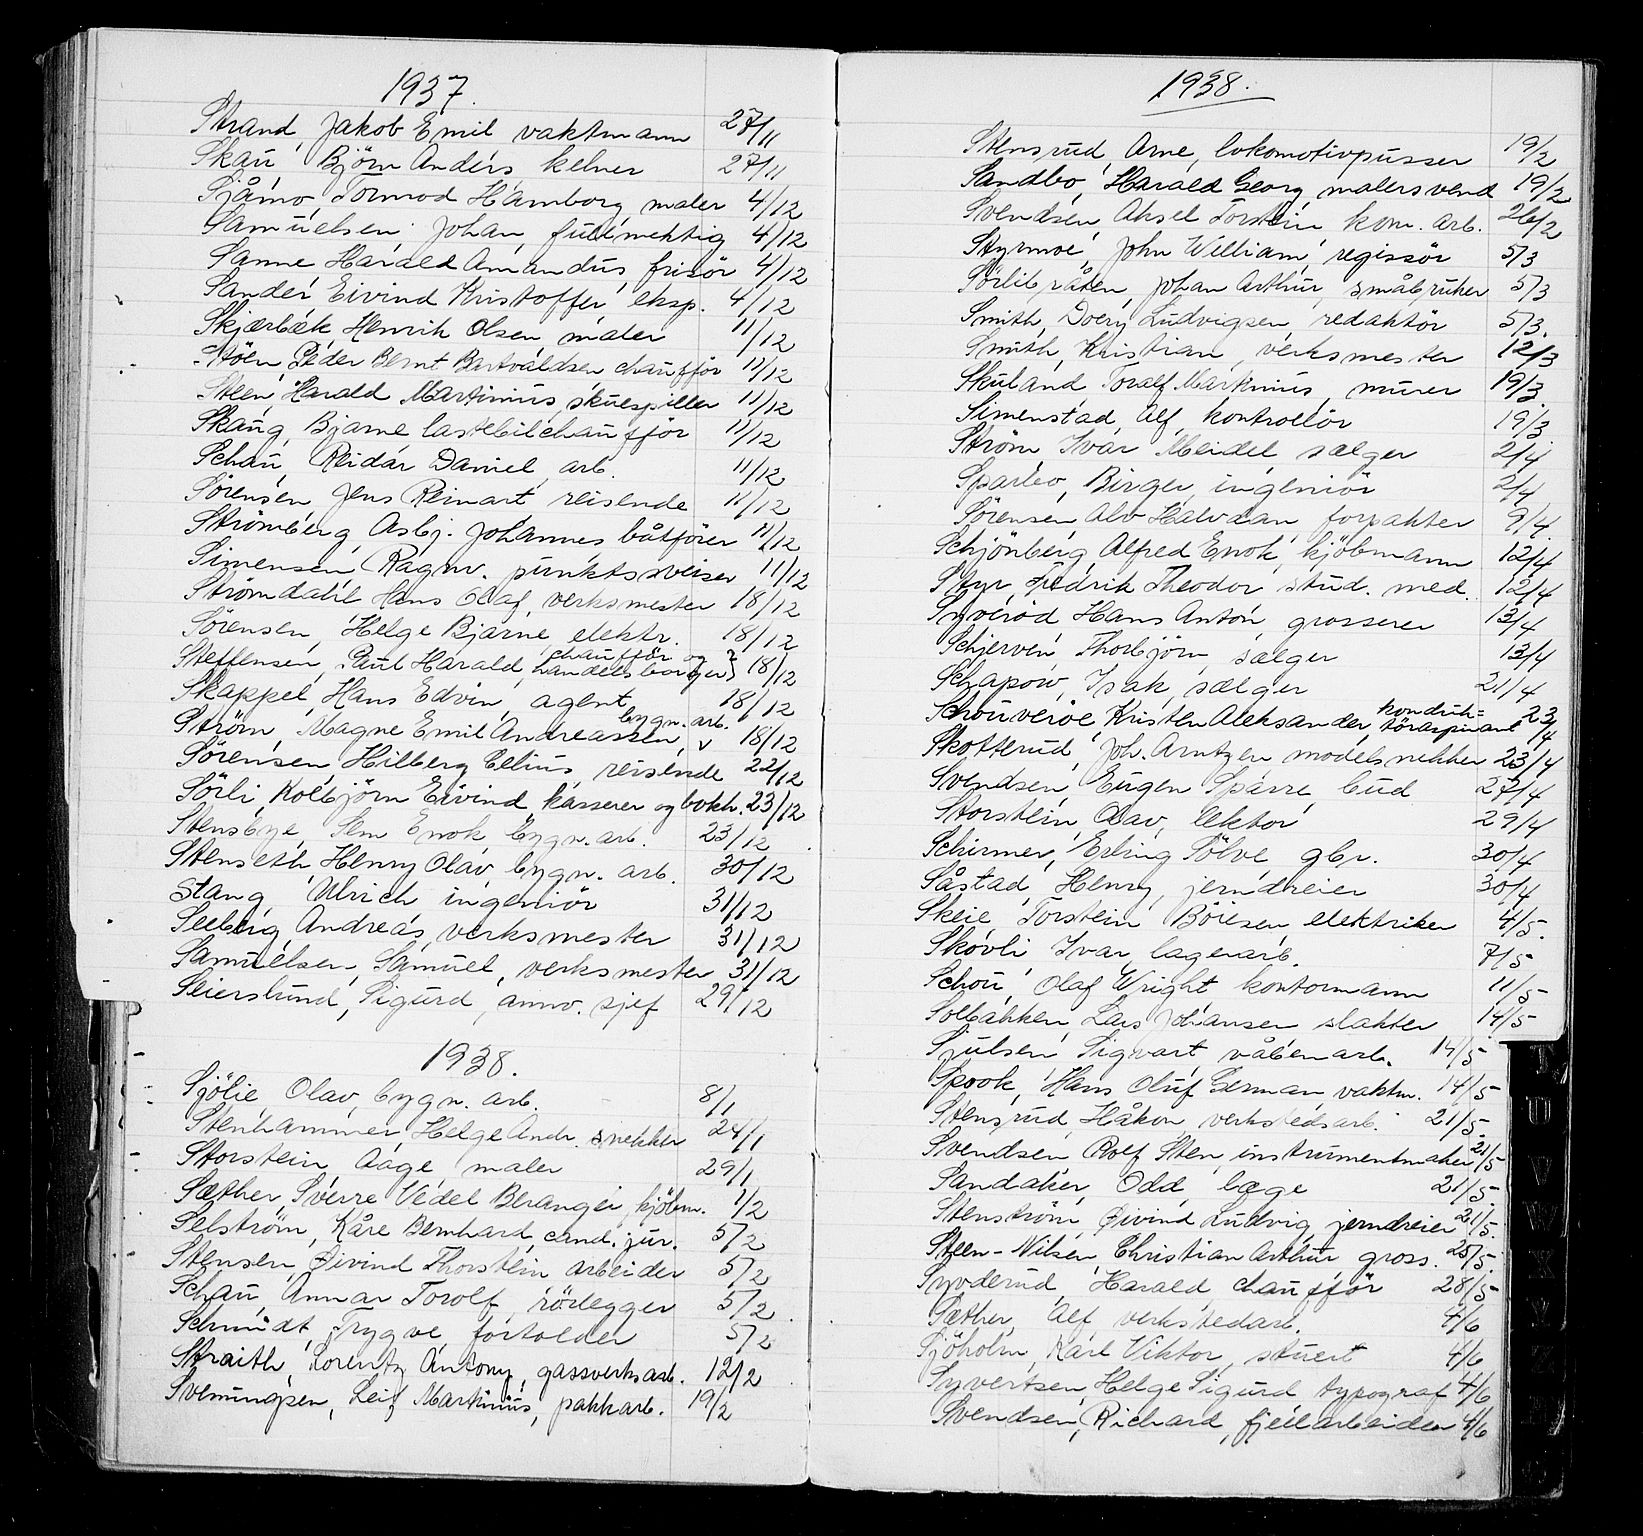 1937.
Strand, Jakob Emil vaktmann 27/11
Skau, Bjørn Anders, kelner 27/11
Sjåmo, Tormod Hamborg, maler 4/12
Samuelsen Johan, fullmektig 4/12
Sanne Harald Amandus, frisör 4/12
Sander, Eivind Kristoffer, eksp. 4/12
Skjærbæk Henrik Olsen, maler 11/12
Støen, Peder Bernt Bertvaldsen chauffør 11/12
Steen, Harald Martinius, skuespiller 11/12
Skaug, Bjarne lastebilchauffør 11/12
Schau, Reidar Daniel, arb. 11/12
Sørensen Jens Reinart, reisende 11/12
Strömberg, Asbj. Johannes båtfører 11/12
Simensen, Ragnv. punktsveiser 11/12
Strömdahl Hans Olaf, verksmester 18/12
Sørensen, Helge Bjarne, elektr. 18/12
Steffensen, Paul Harald, chauffør og handelsborger 18/12
Skappel, Hans Edvin, agent 18/12
Ström, Magne Emil Andreassen, bygn. arb. 18/12
Sørensen Hilberg Celius, reisende 22/12
Sörli, Kolbjörn Eivind, kasserer og bokh. 23/12
Stensbye, Elm Enok bygn. arb. 23/12
Stenseth, Henry Olav, bygn. arb. 30/12
Stang, Ulrich ingeniör 31/12
Seeberg, Andreas, verksmester 31/12
Samuelsen, Samuel, verksmester 31/12
Seierslund, Sigurd, annv. sjef 29/12
1938.
Sjölie Olav, bygn. arb. 8/1
Stenhammer, Helge Andr. snekker 24/1
Storstein, Aage maler 29/1
Sæther, Sverre Vedel Berangei, kjöbm. 1/2
Selström, Kåre Bernhard, cand. jur. 5/2
Stensen, Øivind Thorstein, arbeider 5/2
Schau, Annar Torolf, rörlegger 5/2
Schmidt, Trygve, fortolder 5/2
Straith, Lorentz Antony, gassverksarb. 12/2
Sveningsen, Leif Martinius, pakkarb. 19/2
1938.
Stensrud, Arne, lokomotivpusser 19/2
Sandbo, Harald Georg, malersvend 19/2
Svendsen, Aksel Torstein kom. arb. 26/2
Styrmoe, John William, regissör 5/3
Sörlibråten, Johan Arthur, småbruker 5/3
Smith, Doery Ludvigsen, redaktör 5/3.
Smith, Kristian, verksmester 12/3
Skuland Toralf Martinius, murer 19/3.
Simenstad, Alf, kontrollör 19/3.
Ström, Ivar Meidel sælger 2/4
Sparbo, Birger, ingeniör 2/4
Sørensen Alv Halvdan, forpakter 9/4.
Schjönberg, Alfred Enok, kjöbmann 12/4
Styr, Fredrik Theodor stud. med. 12/4
Syveröd Hans Anton, grosserer 13/4
Schjerven Thorbjörn, sælger 13/4
Schapow, Isak, sælger 21/4
Schouveröe, Kristen Aleksander, konduk=töraspirant 23/4
Skotterud, Joh. Arntzen modelsnekker 23/4
Svendsen, Eugen Sparre, bud 27/4
Storstein Olav, lektor 29/4
Schirmer, Erling Sölve gbr. 30/4
Såstad, Henry, jerndreier 30/4
Skeie, Torstein Böiesen elektriker 4/5.
Skovli Ivar, lagerarb. 7/5
Schou, Olaf Wright kontormann 11/5
Solbakken, Lars Johansen slakter 14/5
Sjulsen, Sigvart våbenarb. 14/5
Spook, Hans Oluf German, vaktm. 14/5
Stensrud, Håkon, verkstedsarb. 21/5.
Svendsen, Rolf Sten, instrumentmaker 21/5
Sandaker, Odd, læge 21/5.
Stenström, Øivind Ludvig, jerndreier 21/5.
Steen-Nilsen, Christian Arthur gross. 25/5.
Syvderud, Harald chauffør 28/5
Sæther, Alf, verkstedarb. 4/6
Sjöholm, Karl Viktor, stuert 4/6
Syvertsen, Helge Sigurd typograf 4/6
Svendsen, Richard, fjellarbeider 4/6
U
V
W
X
Y
Z